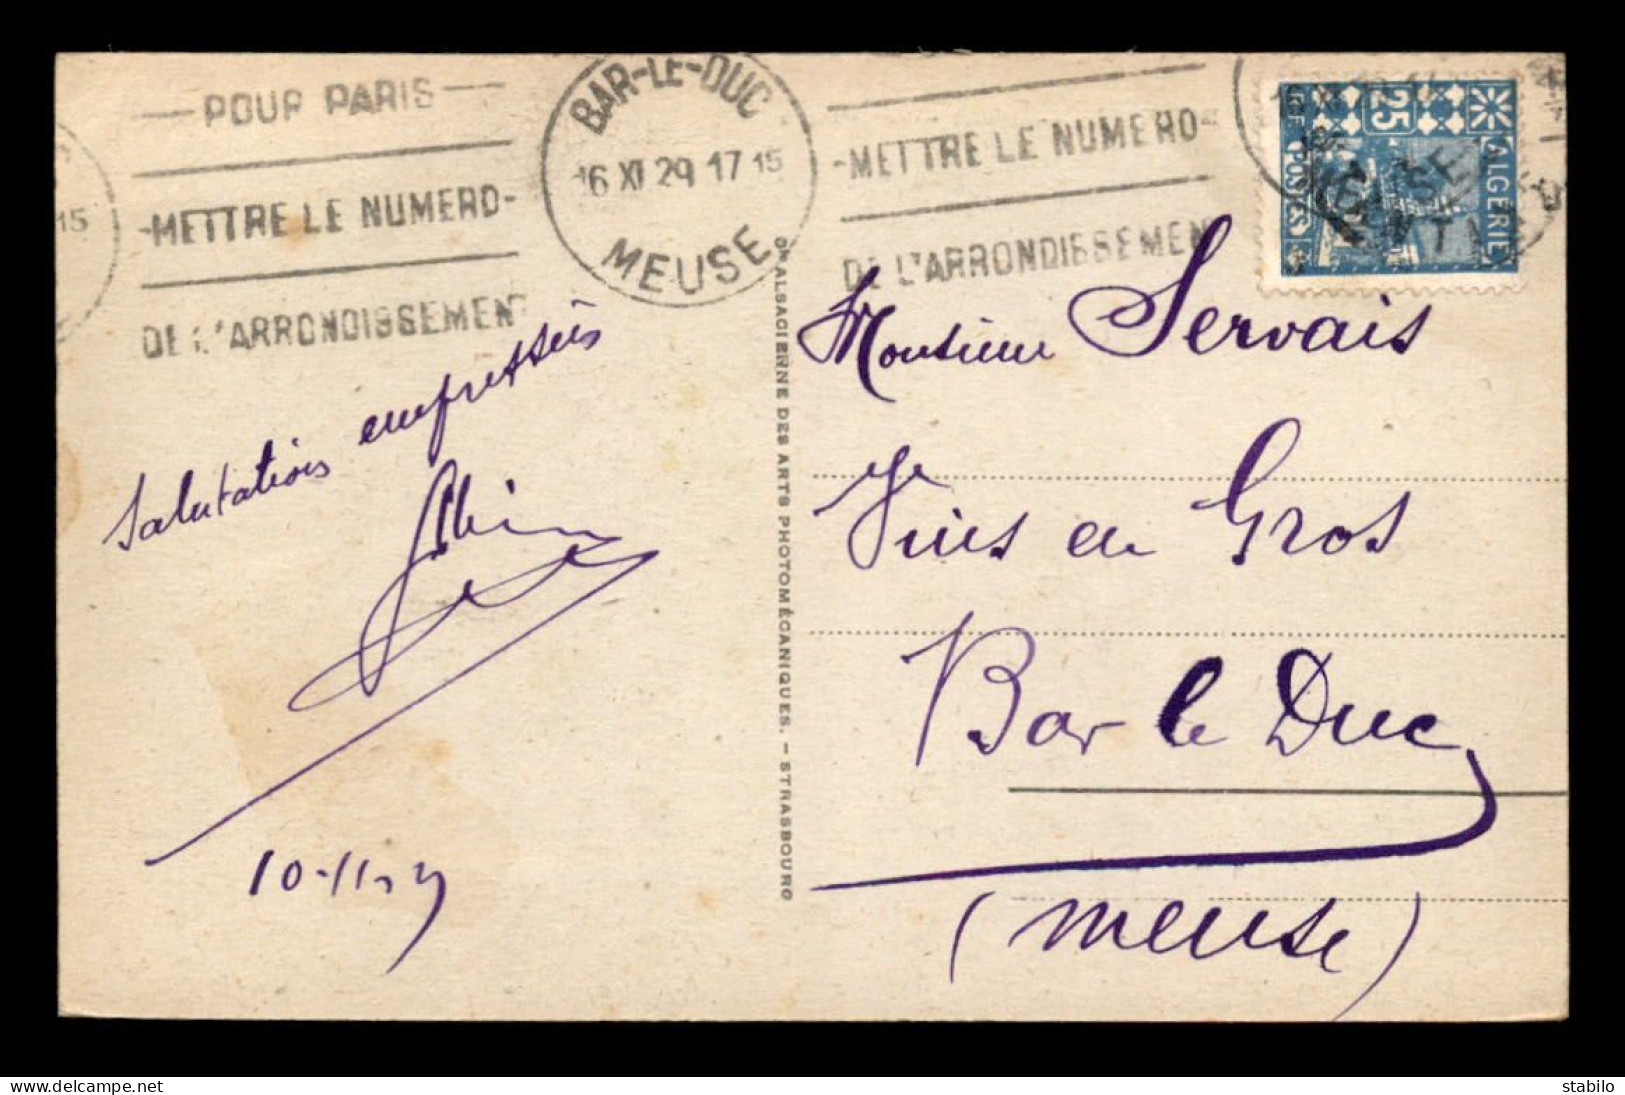 POUR PARIS
METTRE LE NUMERO
DE L'ARRONDISSEMENT
15
BAR-LE-DUC
16 XI 29 17 15
MEUSE
METTRE LE NUMERO
DE L'ARRONDISSEMENT
ALGÉRIE
25
POSTES
RF
Salutations empressées
10-11-29
Cie ALSACIENNE DES ARTS PHOTOMÉCANIQUES. - STRASBOURG
Monsieur Servais
Vins en Gros
Bar le Duc
(Meuse)
stabilo